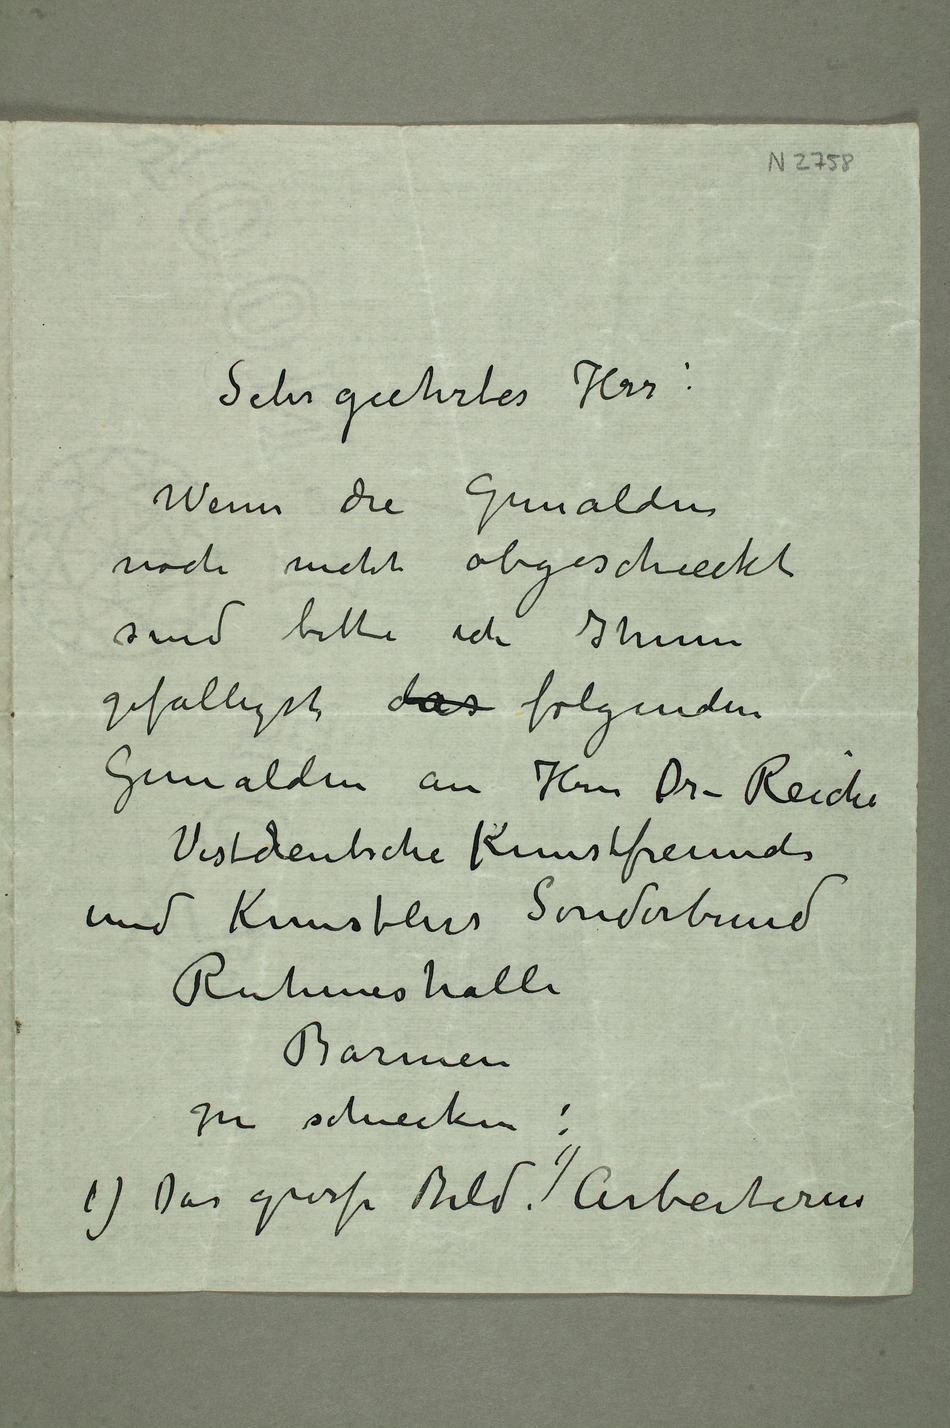 N 2758
Sehr geehrtes Herr!
Wenn die Gemälden
noch nicht abgescheckt
sind bitte ich Ihnen
gefälligst das folgenden
Gemälden an Herrn Dr- Reiche
Vestdeutsche Kunstfreunde
und Kunstlers Sonderbund
Ruhmeshalle
Barmen
zu schecken:
1) Das grosse Bild. "Arbeiteren